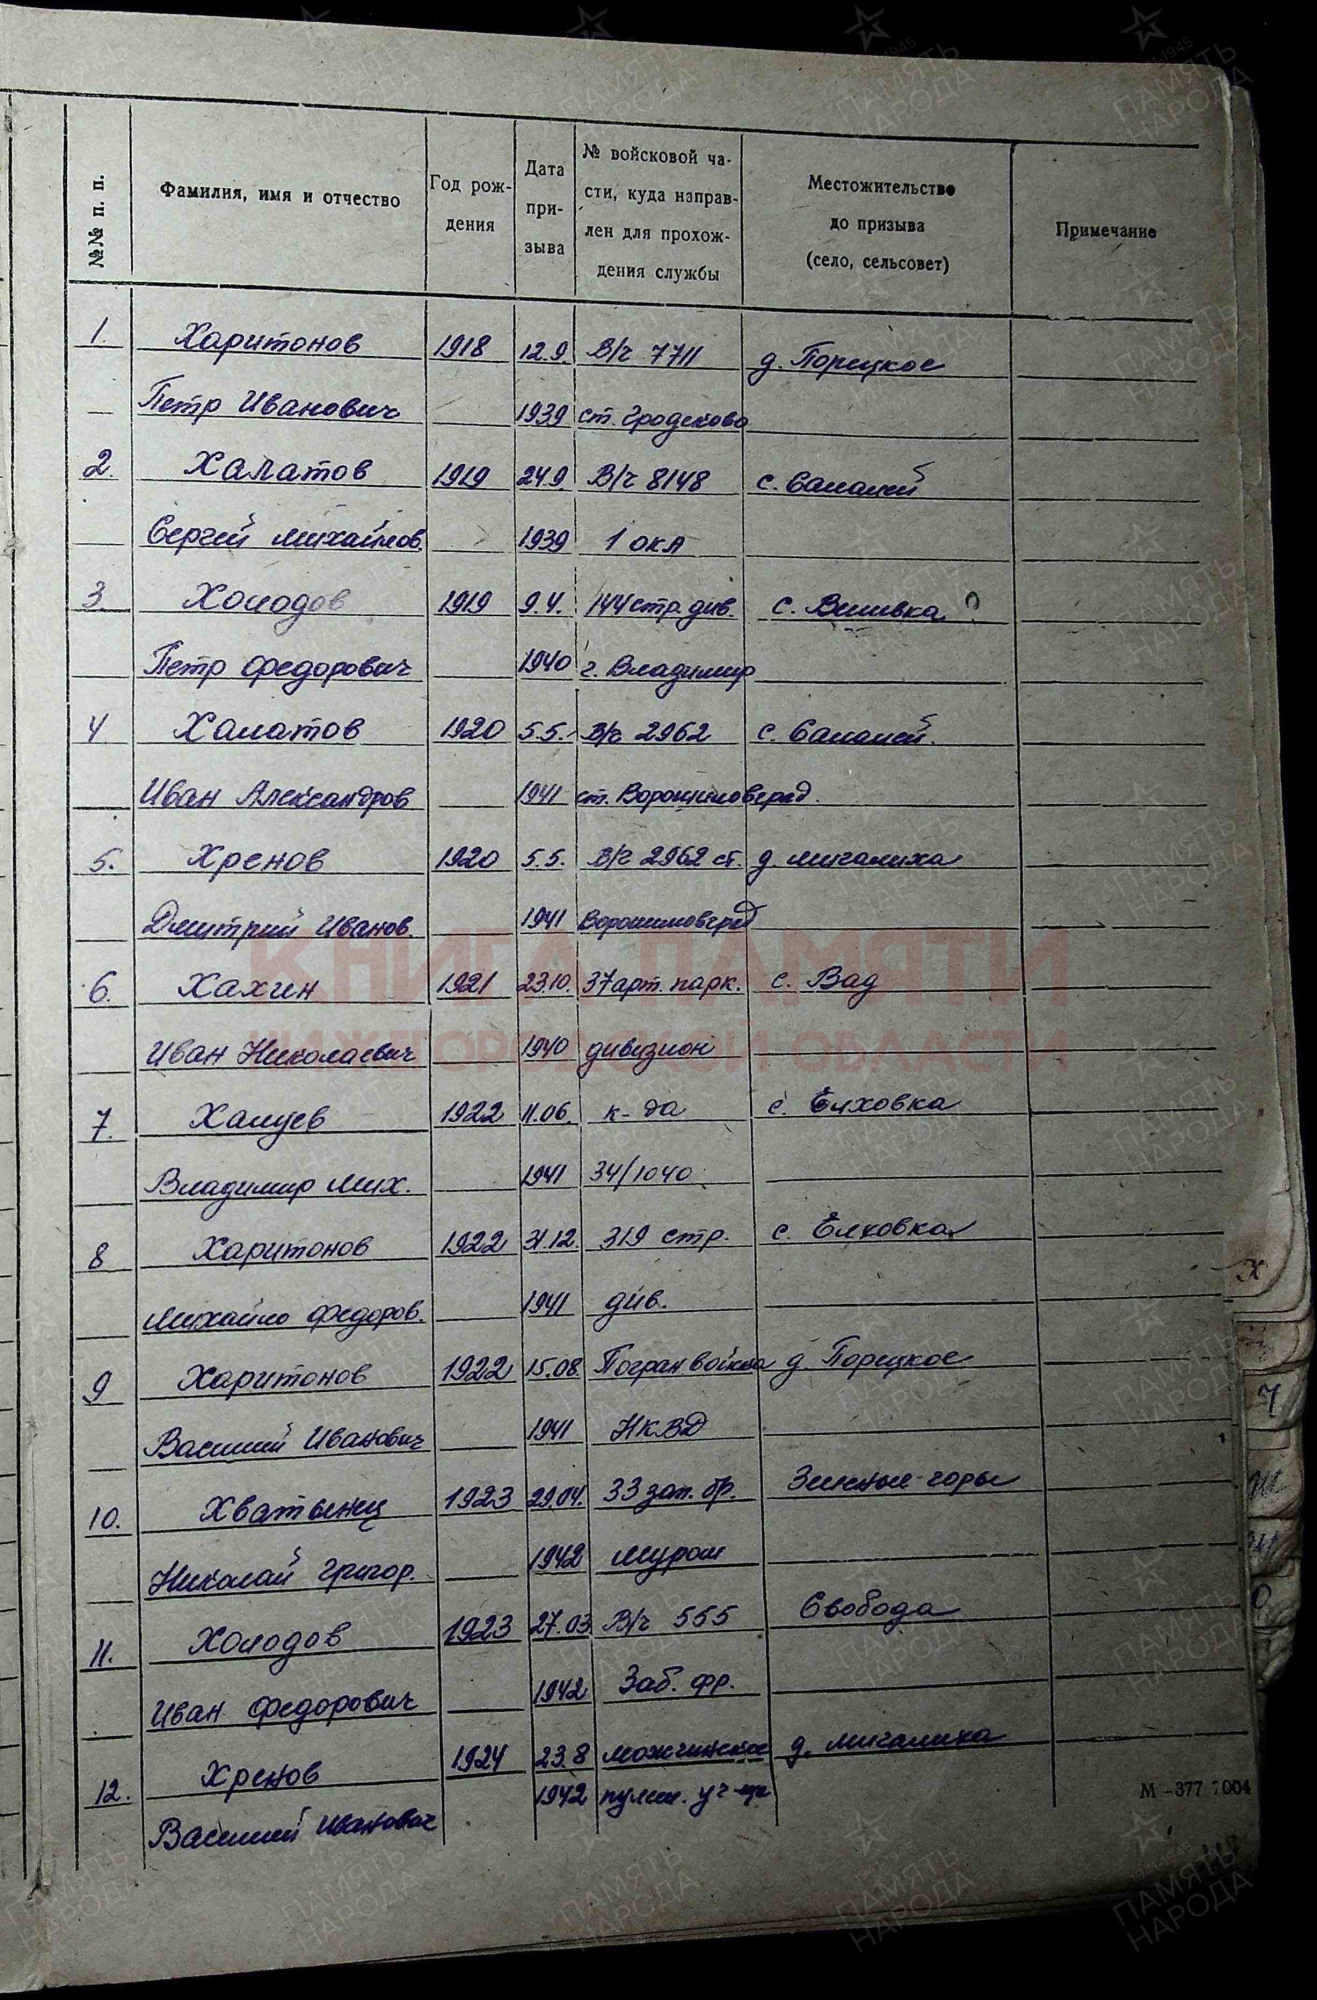 №№ п. п.
Фамилия, имя и отчество
Год рож-
дения
Дата
при-
зыва
№ войсковой ча-
сти, куда направ-
лен для прохож-
дения службы
Местожительство
до призыва
(село, сельсовет)
Примечание
1. Харитонов 1918 12.9. В/ч 7711 д. Порецкое
Петр Иванович 1939 ст. Гродеково
2. Халатов 1919 24.9 В/ч 8148 с. Салалей
Сергей Михайлов. 1939 1 ОКА
3. Холодов 1919 9.4. 144 стр. див. с.
Петр Федорович 1940 г. Владимир
4 Халатов 1920 5.5. В/ч 2962 с. Салалей.
Иван Александров 1941 ст. Ворошиловград.
5. Хренов 1920 5.5. В/ч 2962 ст. д. Мигалиха
Дмитрий Иванов. 1941 Ворошиловград
6. Хахин 1921 23.10. 37 арт. парк. с. Вад
Иван Николаевич 1940 дивизион
7. Халуев 1922 11.06. к-да с. Елховка
Владимир Мих. 1941 34/1040
8 Харитонов 1922 31.12. 319 стр. с. Елховка
Михайло Федоров. 1941 див.
9 Харитонов 1922 15.08. Погран войска д. Порецкое
Василий Иванович 1941 НКВД
10. Хватынец 1923 29.04. 33 зап. бр. Зеленые горы
Николай Григор. 1942 Муром
11. Холодов 1923 27.03 В/ч 555 Свобода
Иван Федорович 1942 Заб. фр.
12. Хренов 1924 23.8 д. Мигалиха
Василий Иванович 1942 пулем. уч-ще
М-377 7004
Х
КНИГА ПАМЯТИ
НИЖЕГОРОДСКОЙ ОБЛАСТИ
ПАМЯТЬ
НАРОДА